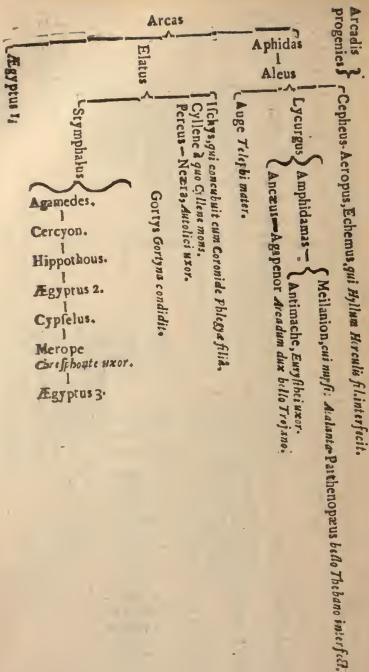 Arcadis
progenies
Arcas
Aphidas
Aleus
Cepheus-Aeropus, Echemus, qui Hyllum Herculis fil. interfecit.
Lycurgus
Amphidamas—
Meilanion, cui nupsit Atalanta-Parthenopæus bello Thebano interfect.
Antimache, Eurysthei uxor.
Ancæus—Agapenor Arcadum dux bello Trojano.
Auge Telephi mater.
Elatus
Ischys, qui concubuit cum Coronide Phlegyæ filiâ.
Cyllene à quo Cyllene mons.
Pereus—Neæra, Autolici uxor.
Gortys Gortyna condidit.
Stymphalus
Agamedes.
Cercyon.
Hippothous.
Ægyptus 2.
Cypselus.
Merope
Chresphonte uxor.
Ægyptus 3.
Ægyptus 1.